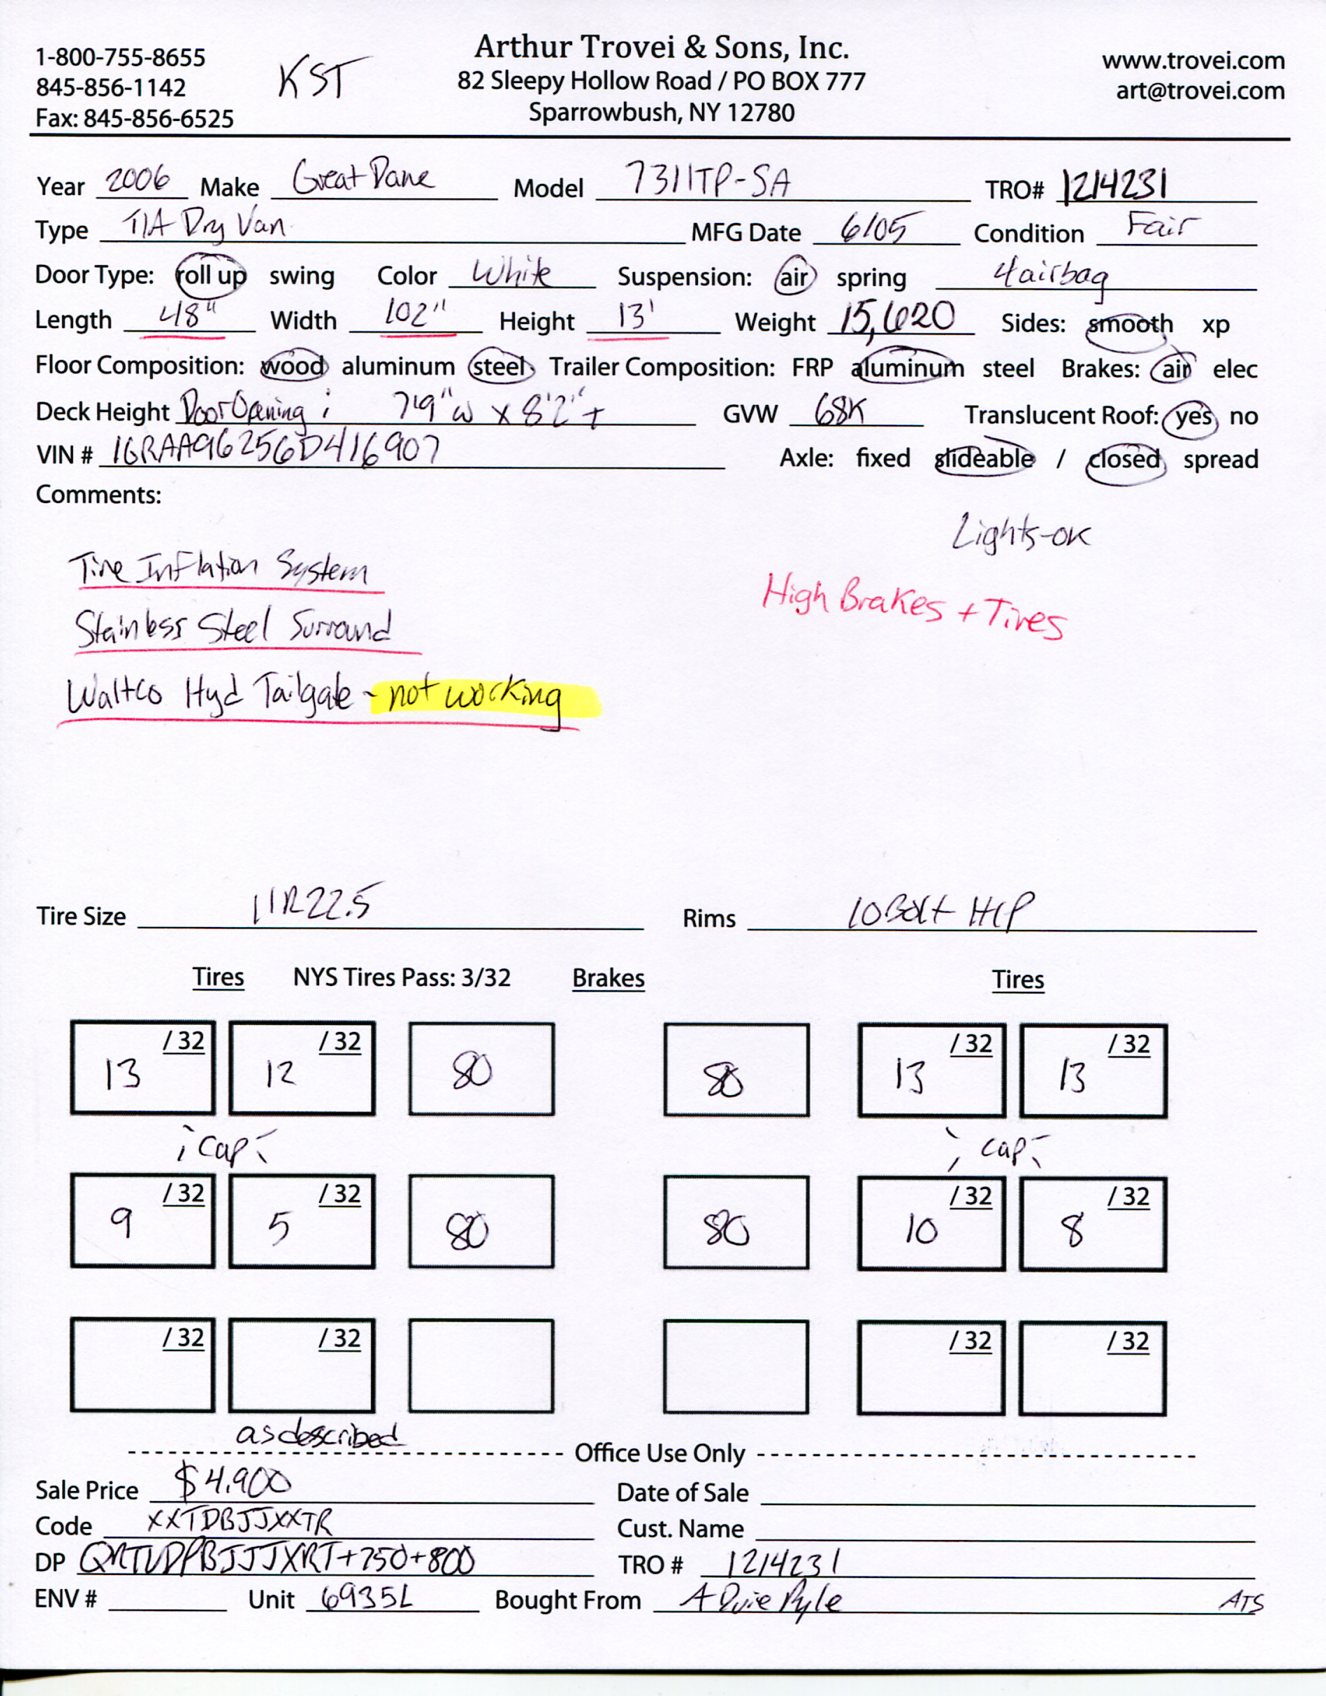 1-800-755-8655
845-856-1142
Fax: 845-856-6525
KST
Arthur Trovei & Sons, Inc.
82 Sleepy Hollow Road / PO BOX 777
Sparrowbush, NY 12780
www.trovei.com
art@trovei.com
Year 2006 Make Great Dane Model 7311TP-SA TRO# 1214231
Type T/A Dry Van MFG Date 6/05 Condition Fair
Door Type: roll up swing Color White Suspension: air spring 4 airbag
Length 48" Width 102" Height 13' Weight 15,620 Sides: smooth xp
Floor Composition: wood aluminum steel Trailer Composition: FRP aluminum steel Brakes: air elec
Deck Height Door Opening: 7'9"w x 8'2"+ GVW 68K Translucent Roof: yes no
VIN # 1GRAA96256D416907 Axle: fixed slideable / closed spread
Comments:
Lights-ok
Tire Inflation System
High Brakes + Tires
Stainless Steel Surround
Waltco Hyd Tailgate - not working
Tire Size 11R22.5 Rims 10 Bolt HP
Tires NYS Tires Pass: 3/32 Brakes Tires
13 /32 12 /32 80 80 13 /32 13 /32
cap cap
9 /32 5 /32 80 80 10 /32 8 /32
/32 /32 /32 /32
as described
Office Use Only
Sale Price $4,900 Date of Sale
Code XXTDBJJXXTR Cust. Name
DP +750+800 TRO # 1214231
ENV # Unit 6935L Bought From A Duie Pyle ATS